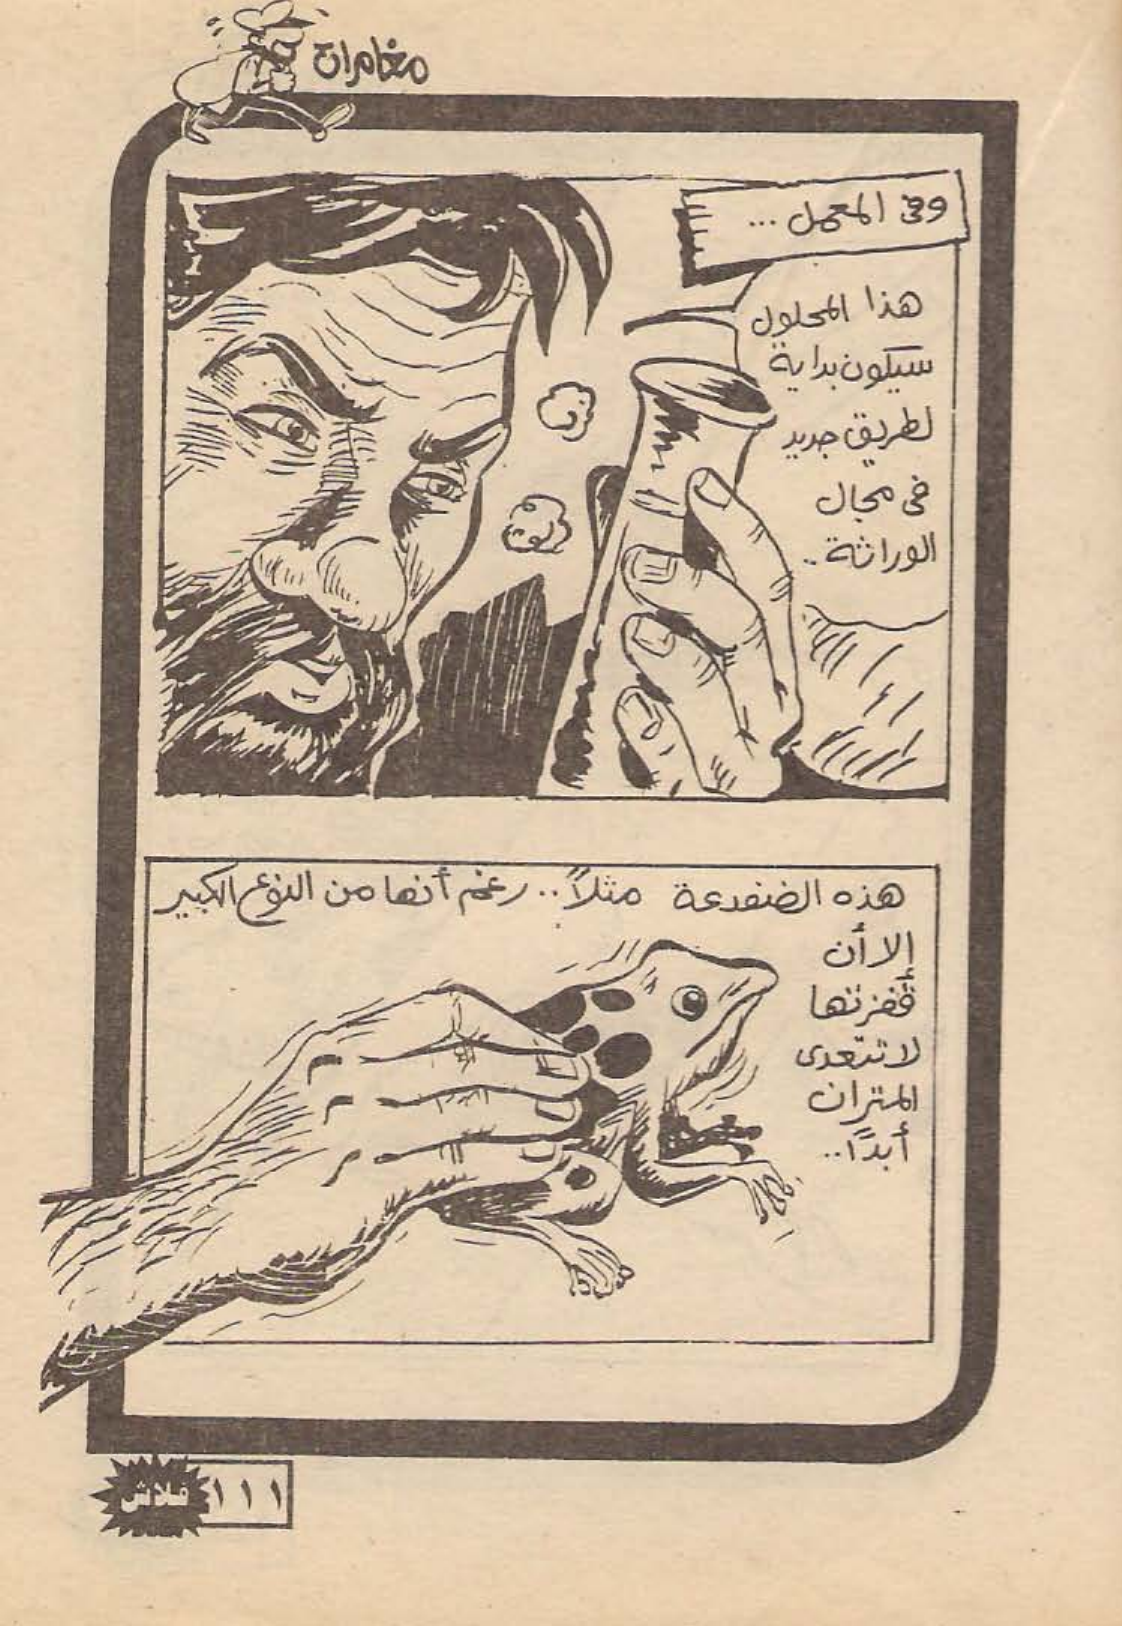 مغامرات
وفى المعمل ...
هذا المحلول
سيكون بداية
لطريق جديد
فى مجال
الوراثة ..
هذه الضفدعة مثلاً .. رغم أنها من النوع الكبير
إلا أن
قفزتها
لا تتعدى
المتران
أبدًا ..
فلاش
١١١